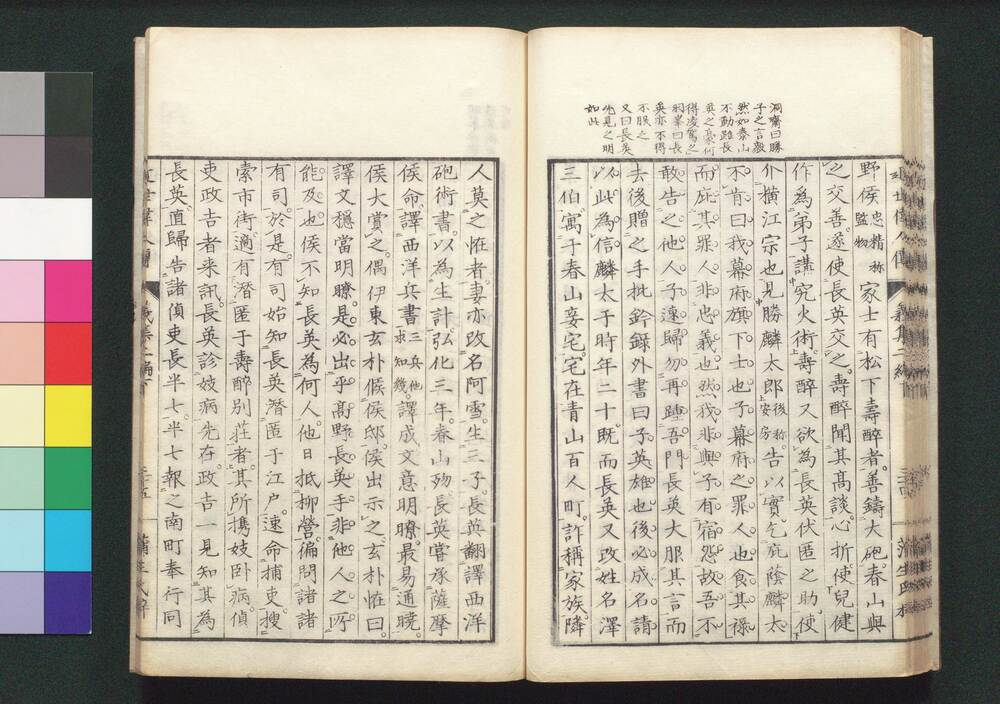 洞齋曰勝
子之言毅
然如泰山
不動雖長
英之豪何
得凌駕之
羽峯曰長
英亦不得
不服之
又曰長英
先見之明
如此
野侯忠精称監物家士有松下壽醉者善鑄大砲春山與
之交善遂使長英交之壽醉聞其高談心折使兒健
作為弟子講究火術壽醉又欲為長英伏匿之助使
介橫江宗也見勝麟太郎後称安房告以實乞庇蔭麟太
不肯曰我幕府旗下士也子幕府之罪人也食其祿
而庇其罪人非忠義也然我非與子有宿怨故吾不
敢告之他人子速歸勿再踵吾門長英大服其言而
去後贈之手批鈐錄外書曰子英雄也後必成名請
以此為信麟太于時年二十既而長英又改姓名澤
三伯寓于春山妾宅宅在青山百人町詐稱家族隣
人莫之怪者妻亦改名阿雪生三子長英翻譯西洋
砲術書以為生計弘化三年春山歿長英嘗承薩摩
侯命譯西洋兵書三兵他求知幾譯成文意明暸最易通曉
侯大賞之偶伊東玄朴候侯邸侯出示之玄朴怪曰
譯文穩當明暸是必出乎高野長英手非他人之所
能及也侯不知長英為何人他日抵柳營徧問諸諸
有司於是有司始知長英潛匿于江戶速命捕吏搜
索市街適有潛匿于壽醉別莊者其所携妓臥病偵
吏政吉者来訊長英診妓病先在政吉一見知其為
長英直歸告諸偵吏長半七半七報之南町奉行同